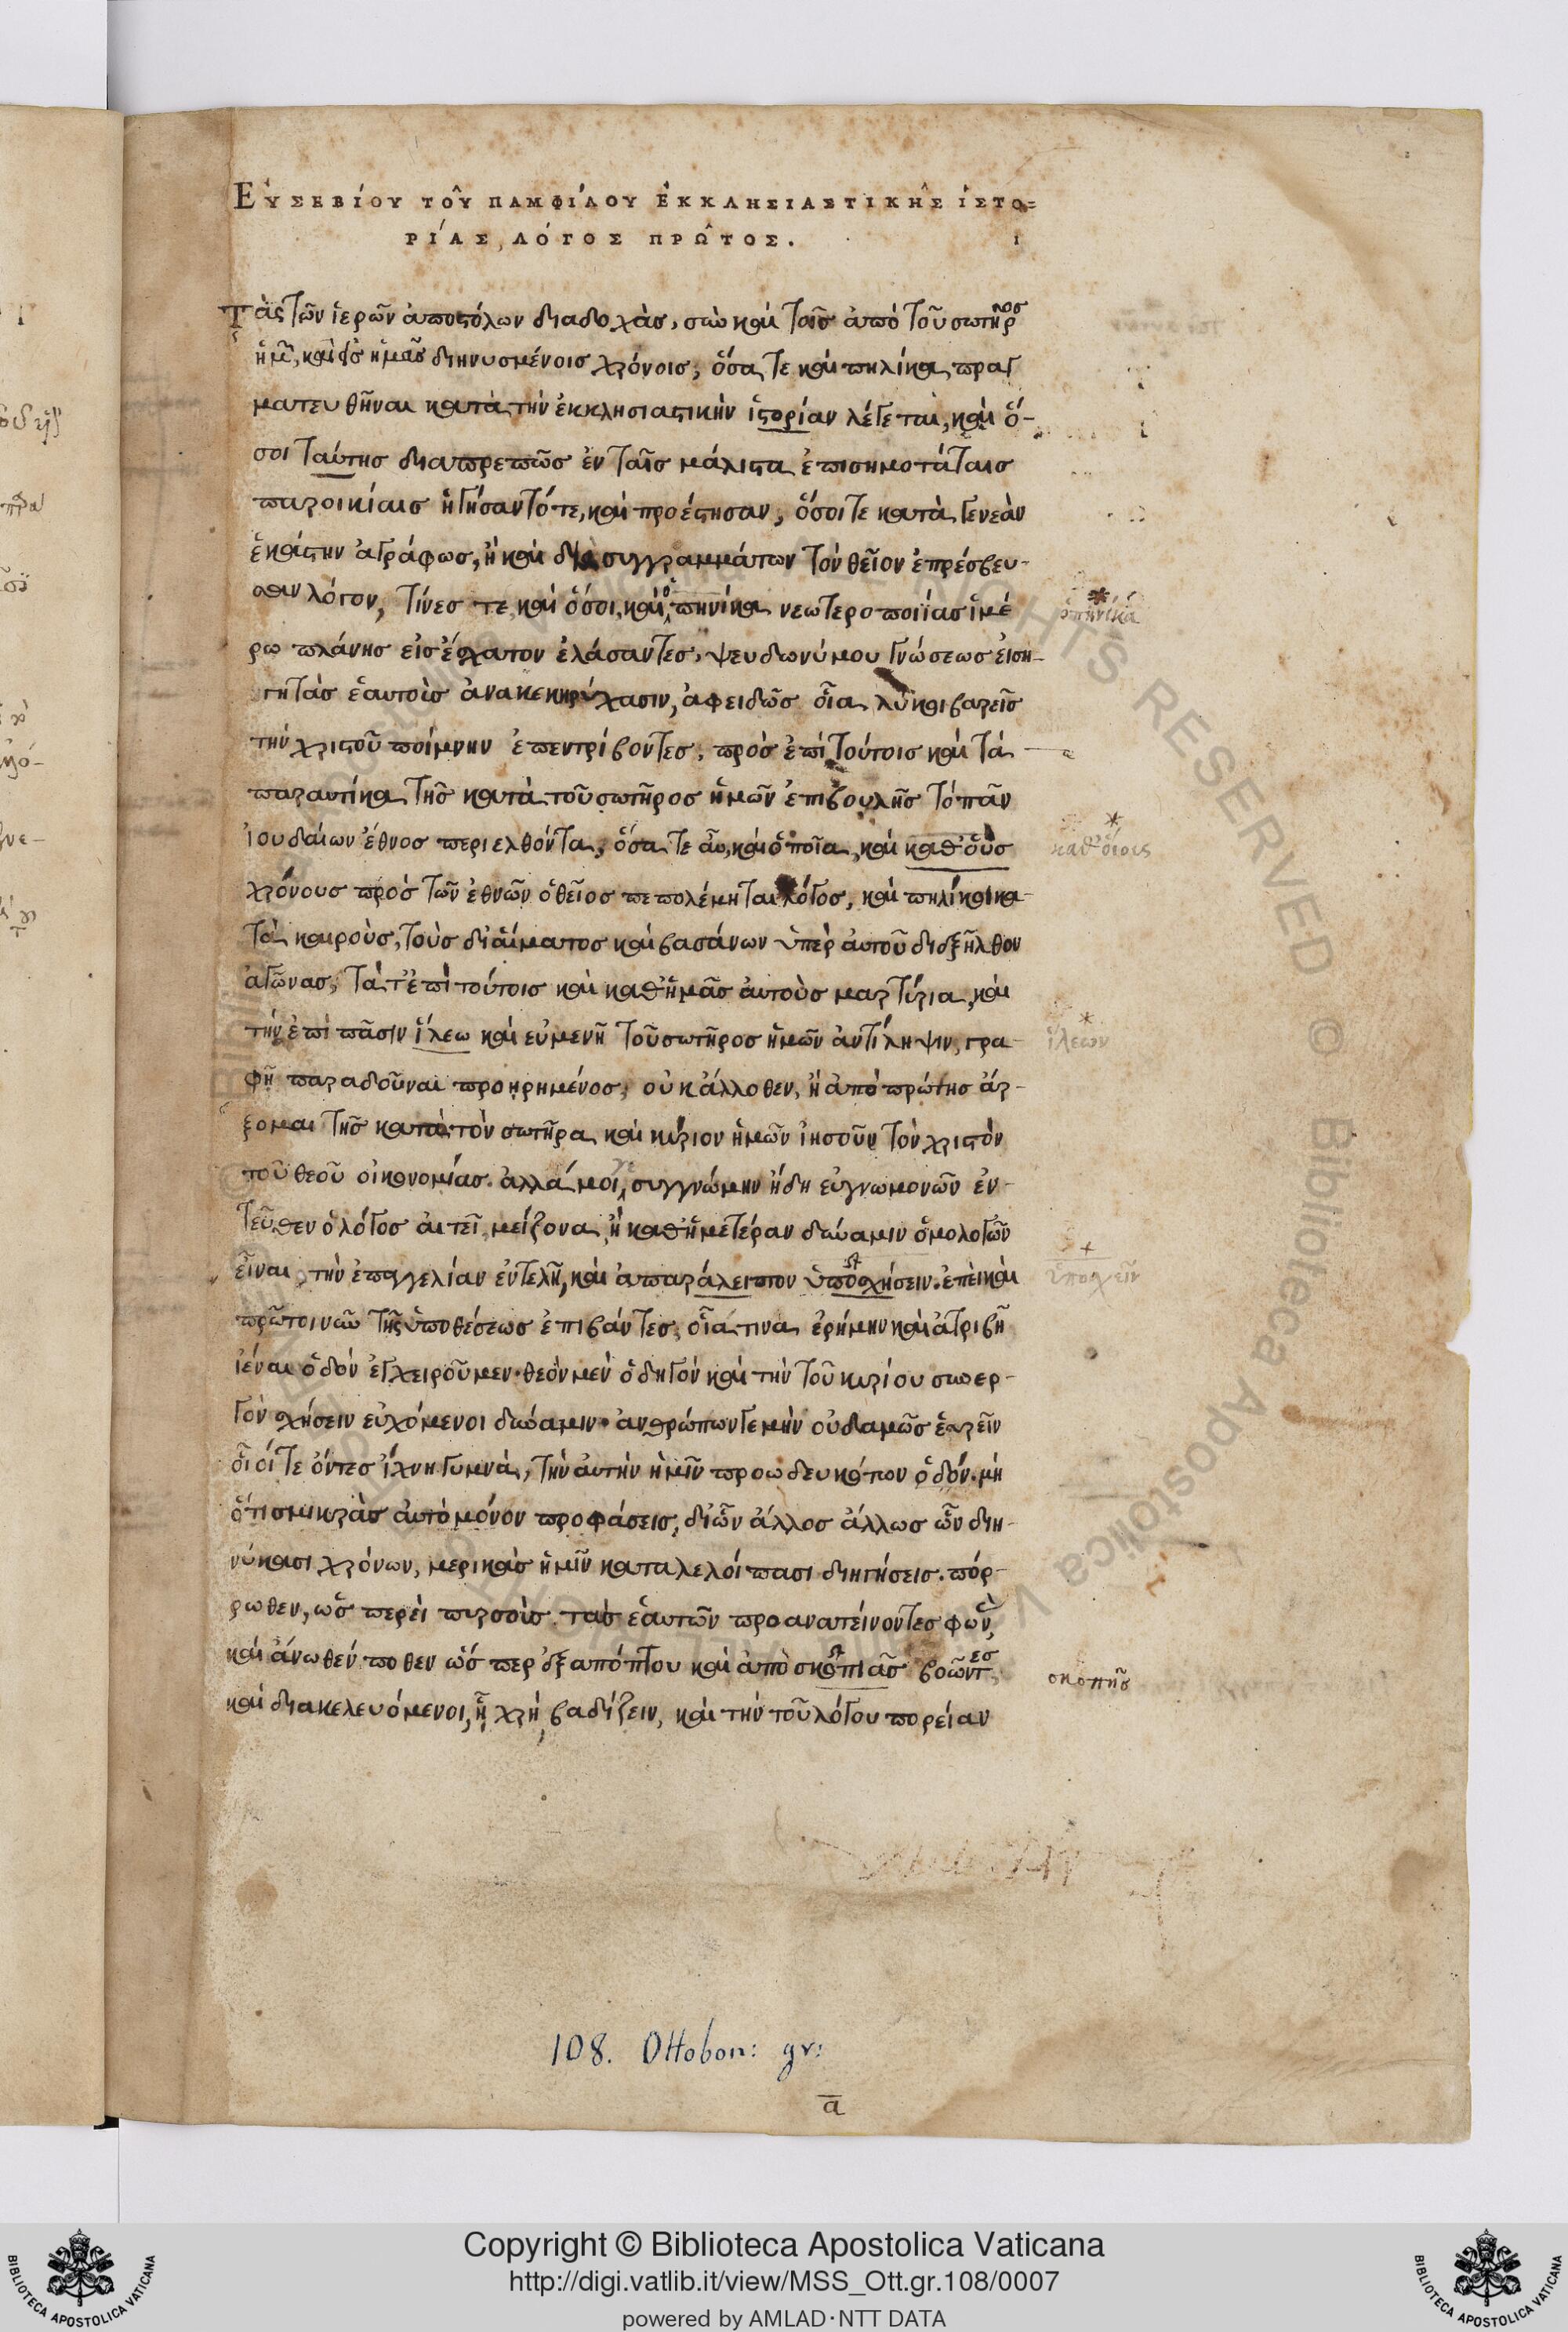 Εὐσεβίου τοῦ Παμφίλου ἐκκλησιαστικῆς ἱστο=
ρίας, λόγος πρῶτος.
1
Τὰς τῶν ἱερῶν ἀποστόλων διαδοχὰς, σὺν καὶ τοῖς ἀπὸ τοῦ σωτῆρος
ἡμῶν, καὶ εἰς ἡμᾶς διηνυσμένοις χρόνοις, ὅσα τε καὶ πηλίκα πραγ
ματευθῆναι κατὰ τὴν ἐκκλησιαστικὴν ἱστορίαν λέγεται, καὶ ὅ-
σοι ταύτης διαπρεπῶς ἐν ταῖς μάλιστα ἐπισημοτάταις
παροικίαις ἡγήσαντό τε, καὶ προέστησαν, ὅσοι τε κατὰ γενεὰν
ἑκάστην ἀγράφως, ἢ καὶ διὰ συγγραμμάτων τὸν θεῖον ἐπρέσβευ-
σαν λόγον, τίνες τε καὶ ὅσοι, καὶ ὁπηνίκα νεωτεροποιίας ἱμέ
ὁπηνίκα
ρω πλάνης εἰς ἔσχατον ἐλάσαντες, ψευδωνύμου γνώσεως εἰση-
γητὰς ἑαυτοὺς ἀνακεκηρύχασιν, ἀφειδῶς οἷα λύκοι βαρεῖς
τὴν χριστοῦ ποίμνην ἐπεντρίβοντες, πρὸς ἐπὶ τούτοις καὶ τὰ
παραυτίκα τῆς κατὰ τοῦ σωτῆρος ἡμῶν ἐπιβουλῆς τὸ πᾶν
ἰουδαίων ἔθνος περιελθόντα, ὅσα τε αὖ, καὶ ὁποῖα, καὶ καθ' οὓς
καθ' οἵους
χρόνους πρὸς τῶν ἐθνῶν ὁ θεῖος πεπολέμηται λόγος, καὶ πηλίκοι κα-
τὰ καιροὺς, τοὺς δι' αἵματος καὶ βασάνων ὑπὲρ αὐτοῦ διεξῆλθον
ἀγῶνας, τά τ' ἐπὶ τούτοις καὶ καθ' ἡμᾶς αὐτοὺς μαρτύρια, καὶ
τὴν ἐπὶ πᾶσιν ἵλεω καὶ εὐμενῆ τοῦ σωτῆρος ἡμῶν ἀντίληψιν, γρα-
ἵλεων
φῇ παραδοῦναι προῃρημένος, οὐκ ἄλλοθεν, ἢ ἀπὸ πρώτης ἄρ-
ξομαι τῆς κατὰ τὸν σωτῆρα καὶ κύριον ἡμῶν ἰησοῦν τὸν χριστὸν
τοῦ θεοῦ οἰκονομίας. ἀλλά μοι συγγνώμην ἤδη εὐγνωμονῶν ἐν-
τεῦθεν ὁ λόγος αἰτεῖ, μείζονα ἢ καθ' ἡμετέραν δύναμιν ὁμολογῶν
εἶναι, τὴν ἐπαγγελίαν ἐντελῆ, καὶ ἀπαράλειπτον ὑποσχήσειν. ἐπεὶ καὶ
ὑποσχεῖν
πρῶτοι νῦν τῆς ὑποθέσεως ἐπιβάντες, οἷά τινα ἐρήμην καὶ ἀτριβῆ
ἰέναι ὁδὸν ἐγχειροῦμεν. θεὸν μὲν ὁδηγὸν καὶ τὴν τοῦ κυρίου συνερ-
γὸν σχήσειν εὐχόμενοι δύναμιν. ἀνθρώπων γε μὴν οὐδαμῶς εὑρεῖν
οἷοί τε ὄντες ἴχνη γυμνὰ, τὴν αὐτὴν ἡμῖν προωδευκότων ὁδόν. μὴ
ὅτι σμικρὰς αὐτὸ μόνον προφάσεις, δι' ὧν ἄλλος ἄλλως ὧν διη-
νύκασι χρόνων, μερικὰς ἡμῖν καταλελοίπασι διηγήσεις. πόρ-
ρωθεν, ὡς περεὶ πυρσοὺς τὰς ἑαυτῶν προανατείνοντες φωνὰς,
καὶ ἄνωθέν ποθεν ὡς περ ἐξ απόπτου καὶ ἀπὸ σκοπιᾶς βοῶντες,
σκοπῆς
καὶ διακελευόμενοι, ᾗ χρὴ βαδίζειν, καὶ τὴν τοῦ λόγου πορείαν
108. Ottobon: gr:
α
Copyright © Biblioteca Apostolica Vaticana
http://digi.vatlib.it/view/MSS_Ott.gr.108/0007
powered by AMLAD·NTT DATA
BIBLIOTECA APOSTOLICA VATICANA
BIBLIOTECA APOSTOLICA VATICANA